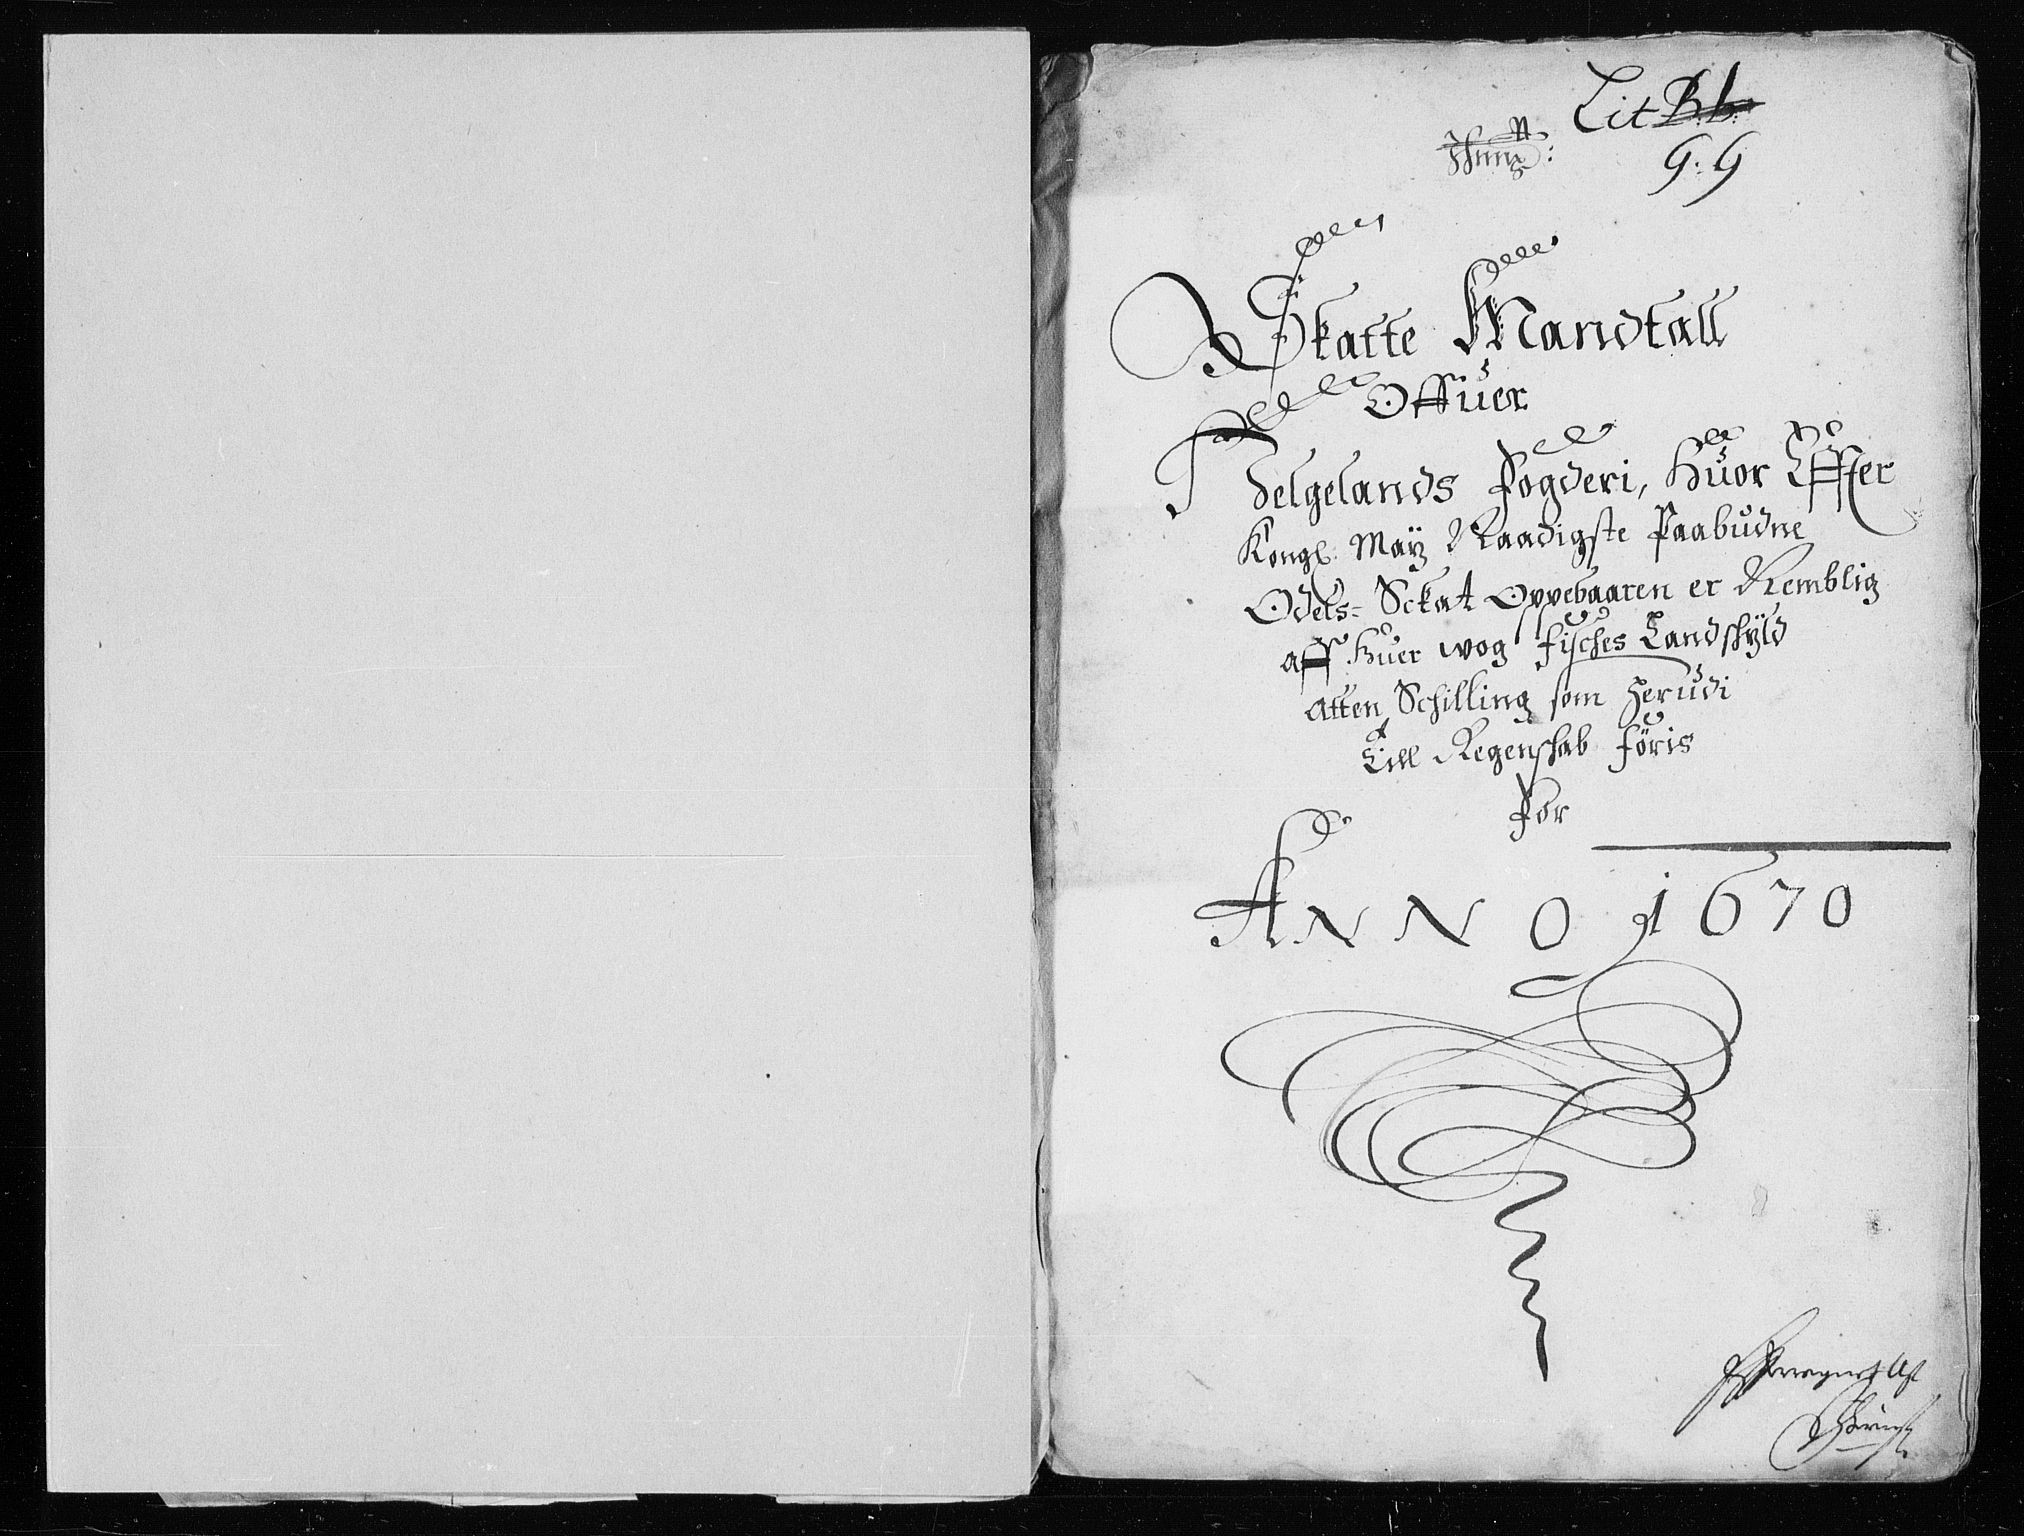 Lit B:b:
G:G
Skatte Mandtall
Offuer
Helgelands Fogderi, Huor Effter
Kongl: Maÿz Naadigste Paabudne
Odels= Sckat Oppebaaren er Nemblig
aff Huer wog Fisches Landschÿld
Atten Schilling som Herudi
Till Regenschab Føris
For
ANNO 1670